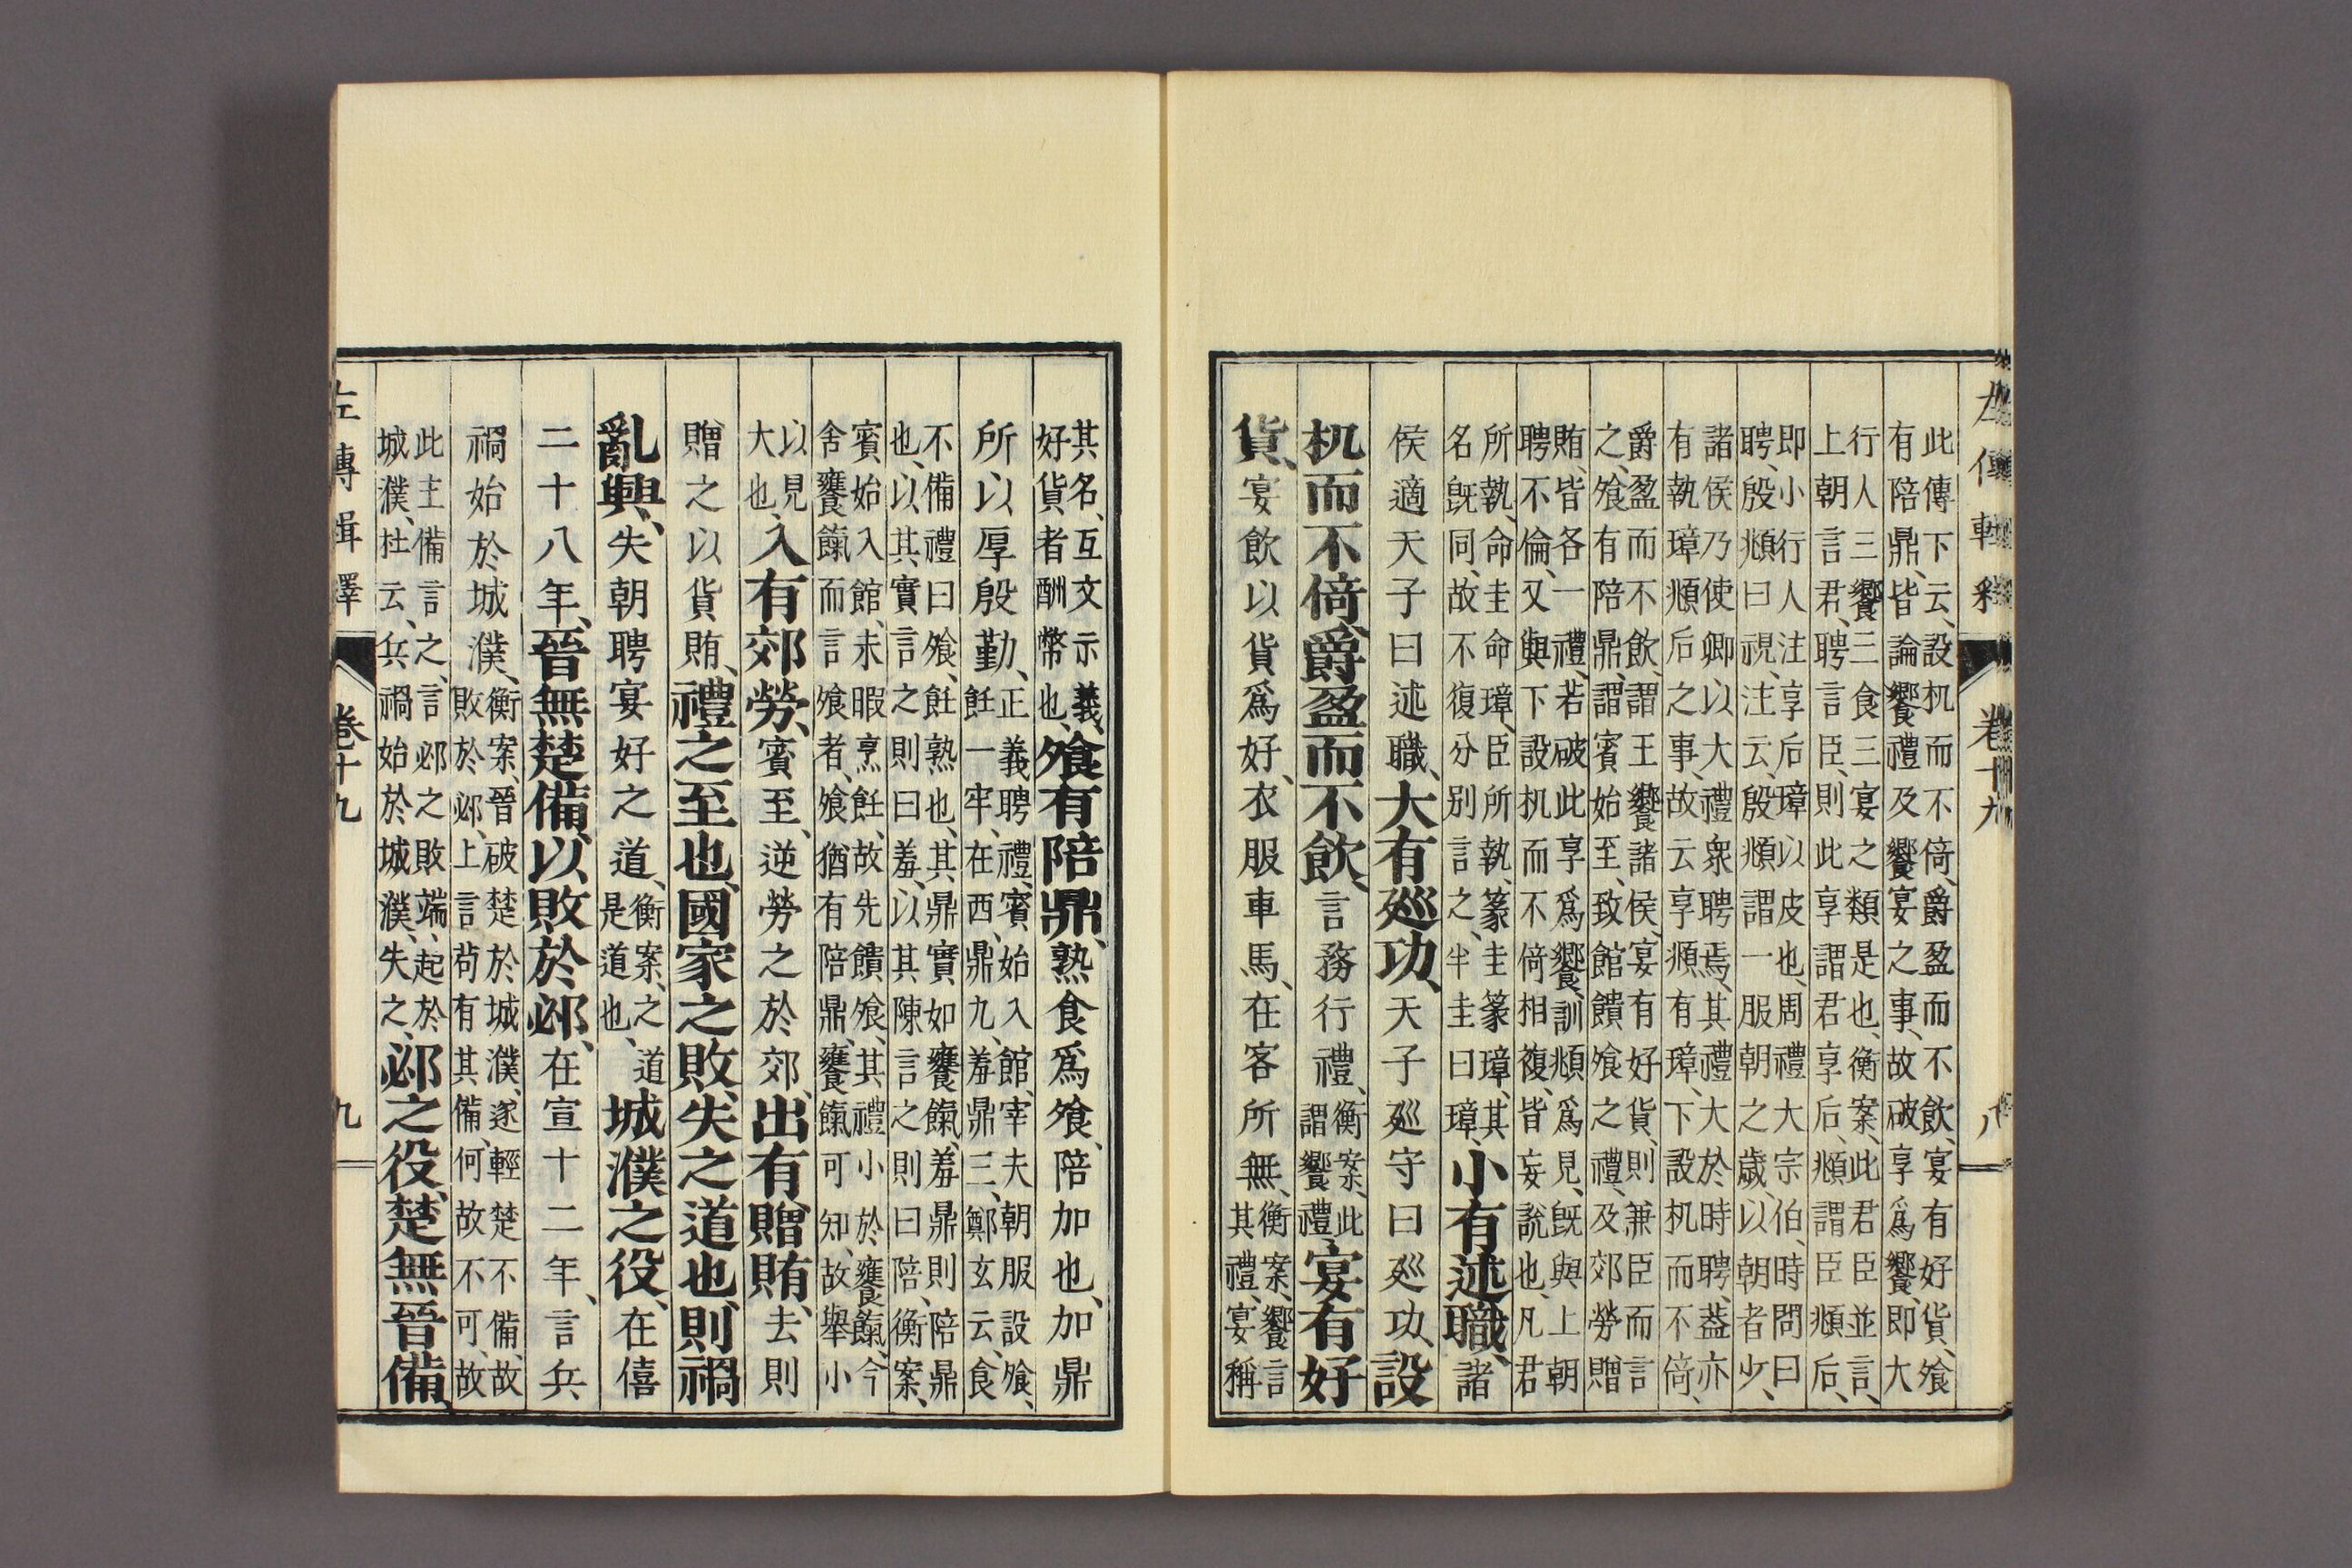 左傳輯釋 卷十九 八
此傳下云、設机而不倚、爵盈而不飲、宴有好貨、飧
有陪鼎、皆論饗禮及饗宴之事、故破享爲饗、即大
行人三饗三食三宴之類是也、衡案、此君臣並言、
上朝言君、聘言臣、則此享謂君享后、頫謂臣頫后、
即小行人注享后璋以皮也、周禮大宗伯、時問曰
聘、殷頫曰視、注云、殷頫謂一服朝之歲、以朝者少、
諸侯乃使卿以大禮衆聘焉、其禮大於時聘、葢亦
有執璋頫后之事、故云享頫有璋、下設机而不倚、
爵盈而不飲、謂王饗諸侯、宴有好貨、則兼臣而言
之、飧有陪鼎、謂賓始至、致館饋飧之禮、及郊勞贈
賄、皆各一禮、若破此享爲饗、訓頫爲見、既與上朝
聘不倫、又與下設机而不倚相複、皆妄説也、凡君
所執、命圭命璋、臣所執、篆圭篆璋、其
名既同、故不復分别言之、半圭曰璋、
小有述職、諸
侯適天子曰述職、大有廵功、天子廵守曰廵功、設
机而不倚、爵盈而不飲、言務行禮、衡案、此謂饗禮、宴有好
貨、宴飲以貨爲好、衣服車馬、在客所無、衡案、饗言其禮、宴稱
其名、互文示義、好貨者酬幣也、飧有陪鼎、熟食爲飧、陪加也、加鼎
所以厚殷勤、正義聘禮、賓始入館、宰夫朝服設飧、
飪一牢、在西、鼎九、羞鼎三、鄭玄云、食
不備禮曰飧、飪熟也、其鼎實如饔餼、羞鼎則陪鼎
也、以其實言之則曰羞、以其陳言之則曰陪、衡案、
賓始入館、未暇烹飪、故先饋飧、其禮小於饔餼、今
舍饔餼而言飧者、飧猶有陪鼎、饔餼可知、故舉小
以見大也、入有郊勞、賓至、逆勞之於郊、出有贈賄、去則
贈之以貨賄、禮之至也、國家之敗、失之道也、則禍
亂興、失朝聘宴好之道、衡案、之道是道也、城濮之役、在僖
二十八年、晉無楚備、以敗於邲、在宣十二年、言兵
禍始於城濮、衡案、晉破楚於城濮、遂輕楚不備、故
敗於邲、上言苟有其備、何故不可、故
此主備言之、言邲之敗端、起於
城濮、杜云、兵禍始於城濮、失之、
邲之役、楚無晉備、
左傳輯釋 卷十九 九